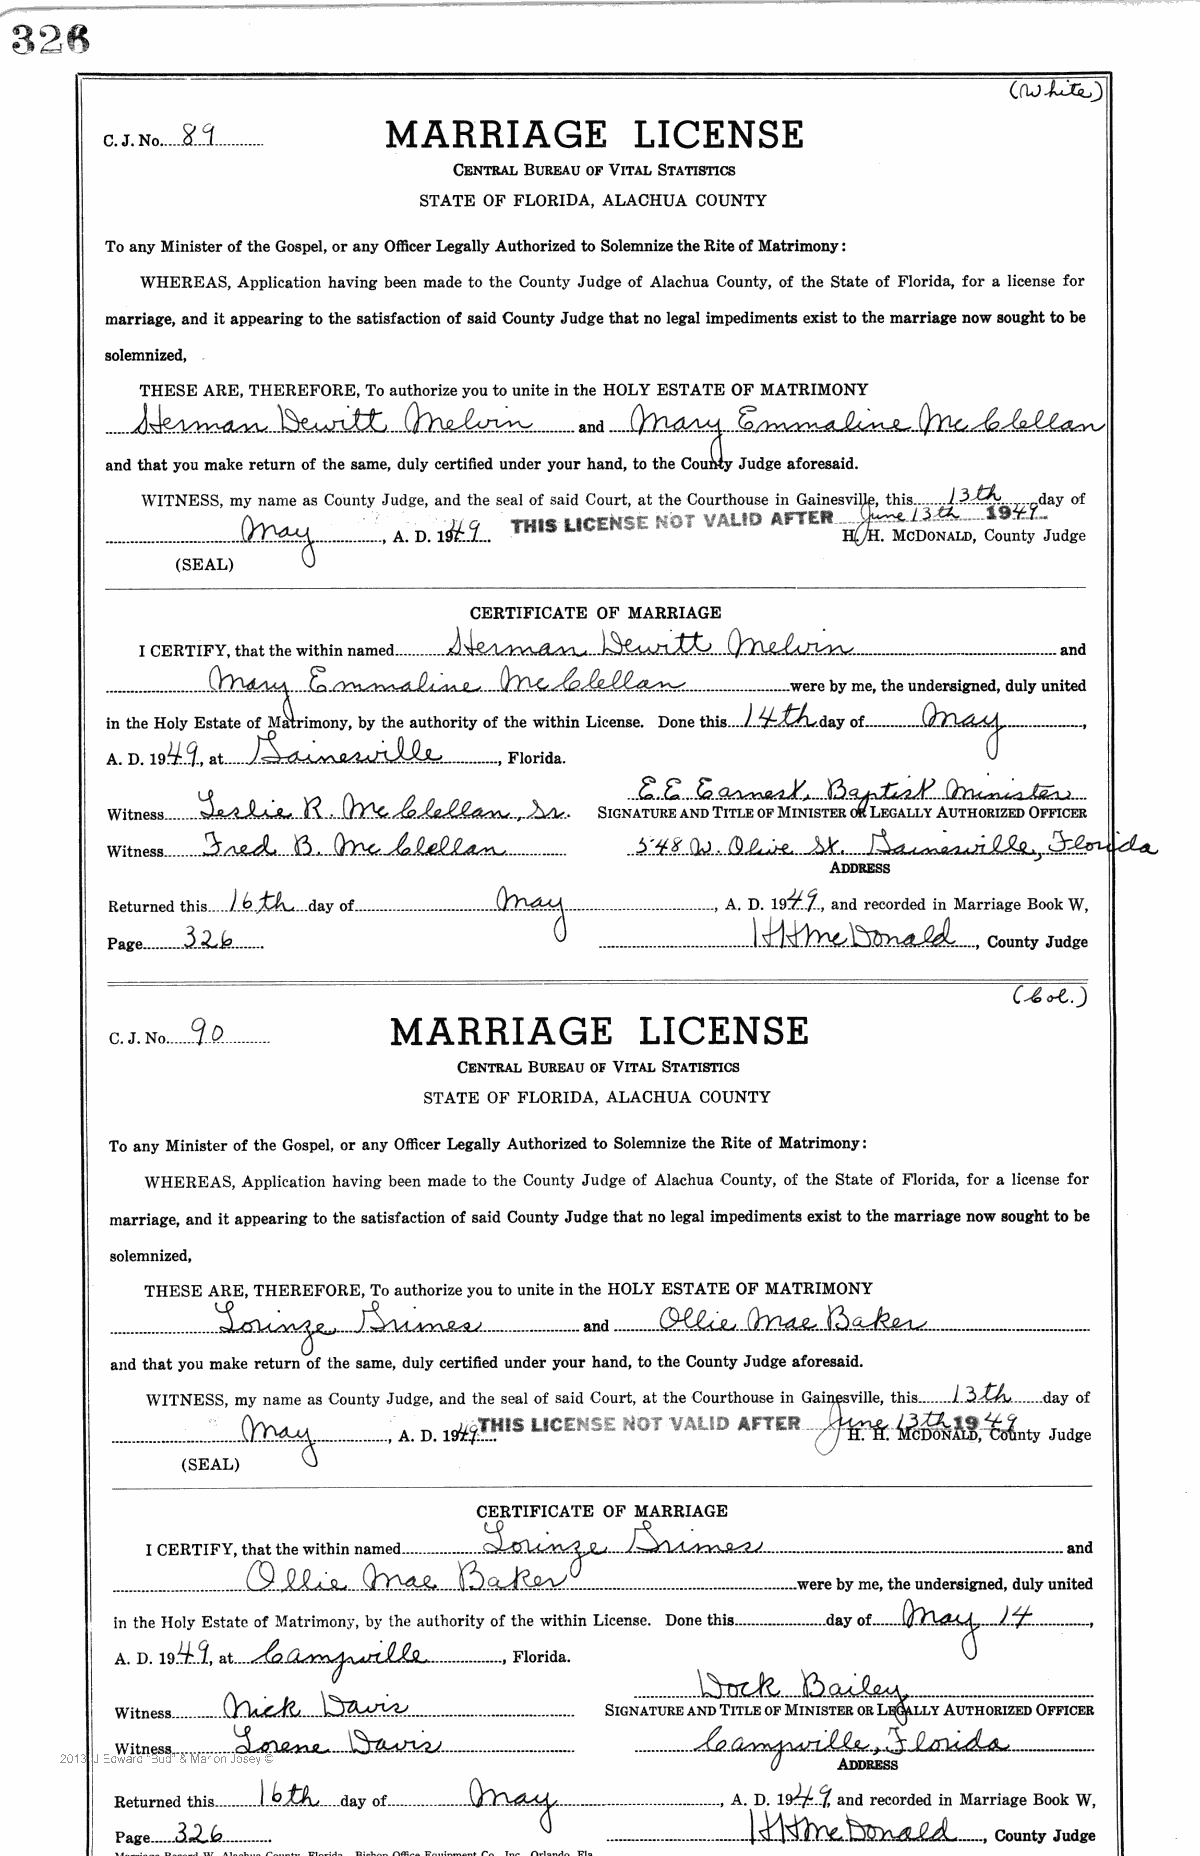 326
(White)
C. J. No. 89
MARRIAGE LICENSE
CENTRAL BUREAU OF VITAL STATISTICS
STATE OF FLORIDA, ALACHUA COUNTY
To any Minister of the Gospel, or any Officer Legally Authorized to Solemnize the Rite of Matrimony:
WHEREAS, Application having been made to the County Judge of Alachua County, of the State of Florida, for a license for
marriage, and it appearing to the satisfaction of said County Judge that no legal impediments exist to the marriage now sought to be
solemnized,
THESE ARE, THEREFORE, To authorize you to unite in the HOLY ESTATE OF MATRIMONY
Herman Dewitt Melvin and Mary Emmaline McClellan
and that you make return of the same, duly certified under your hand, to the County Judge aforesaid.
WITNESS, my name as County Judge, and the seal of said Court, at the Courthouse in Gainesville, this 13th day of
May, A. D. 1949. THIS LICENSE NOT VALID AFTER June 13th 1949
H. H. MCDONALD, County Judge
(SEAL)
CERTIFICATE OF MARRIAGE
I CERTIFY, that the within named Herman Dewitt Melvin and
Mary Emmaline McClellan were by me, the undersigned, duly united
in the Holy Estate of Matrimony, by the authority of the within License. Done this 14th day of May,
A. D. 1949, at Gainesville, Florida.
E. E. Earnest, Baptist Minister
Witness Leslie R. McClellan, Sr. SIGNATURE AND TITLE OF MINISTER OR LEGALLY AUTHORIZED OFFICER
Witness Fred B. McClellan 548 W. Olive St. Gainesville, Florida
ADDRESS
Returned this 16th day of May, A. D. 1949, and recorded in Marriage Book W,
Page 326 HHMcDonald, County Judge
(Col.)
C. J. No. 90
MARRIAGE LICENSE
CENTRAL BUREAU OF VITAL STATISTICS
STATE OF FLORIDA, ALACHUA COUNTY
To any Minister of the Gospel, or any Officer Legally Authorized to Solemnize the Rite of Matrimony:
WHEREAS, Application having been made to the County Judge of Alachua County, of the State of Florida, for a license for
marriage, and it appearing to the satisfaction of said County Judge that no legal impediments exist to the marriage now sought to be
solemnized,
THESE ARE, THEREFORE, To authorize you to unite in the HOLY ESTATE OF MATRIMONY
Lorinze Grimes and Ollie Mae Baker
and that you make return of the same, duly certified under your hand, to the County Judge aforesaid.
WITNESS, my name as County Judge, and the seal of said Court, at the Courthouse in Gainesville, this 13th day of
May, A. D. 1949. THIS LICENSE NOT VALID AFTER June 13th 1949
H. H. MCDONALD, County Judge
(SEAL)
CERTIFICATE OF MARRIAGE
I CERTIFY, that the within named Lorinze Grimes and
Ollie Mae Baker were by me, the undersigned, duly united
in the Holy Estate of Matrimony, by the authority of the within License. Done this day of May 14,
A. D. 1949, at Campville, Florida.
Dock Bailey
Witness Nick Davis SIGNATURE AND TITLE OF MINISTER OR LEGALLY AUTHORIZED OFFICER
Witness Lorene Davis Campville, Florida
2013 J Edward "Bud" & Marion Josey ©
ADDRESS
Returned this 16th day of May, A. D. 1949, and recorded in Marriage Book W,
Page 326 HHMcDonald, County Judge
Marriage Record W, Alachua County, Florida. Bishop Office Equipment Co., Inc. Orlando, Fla.